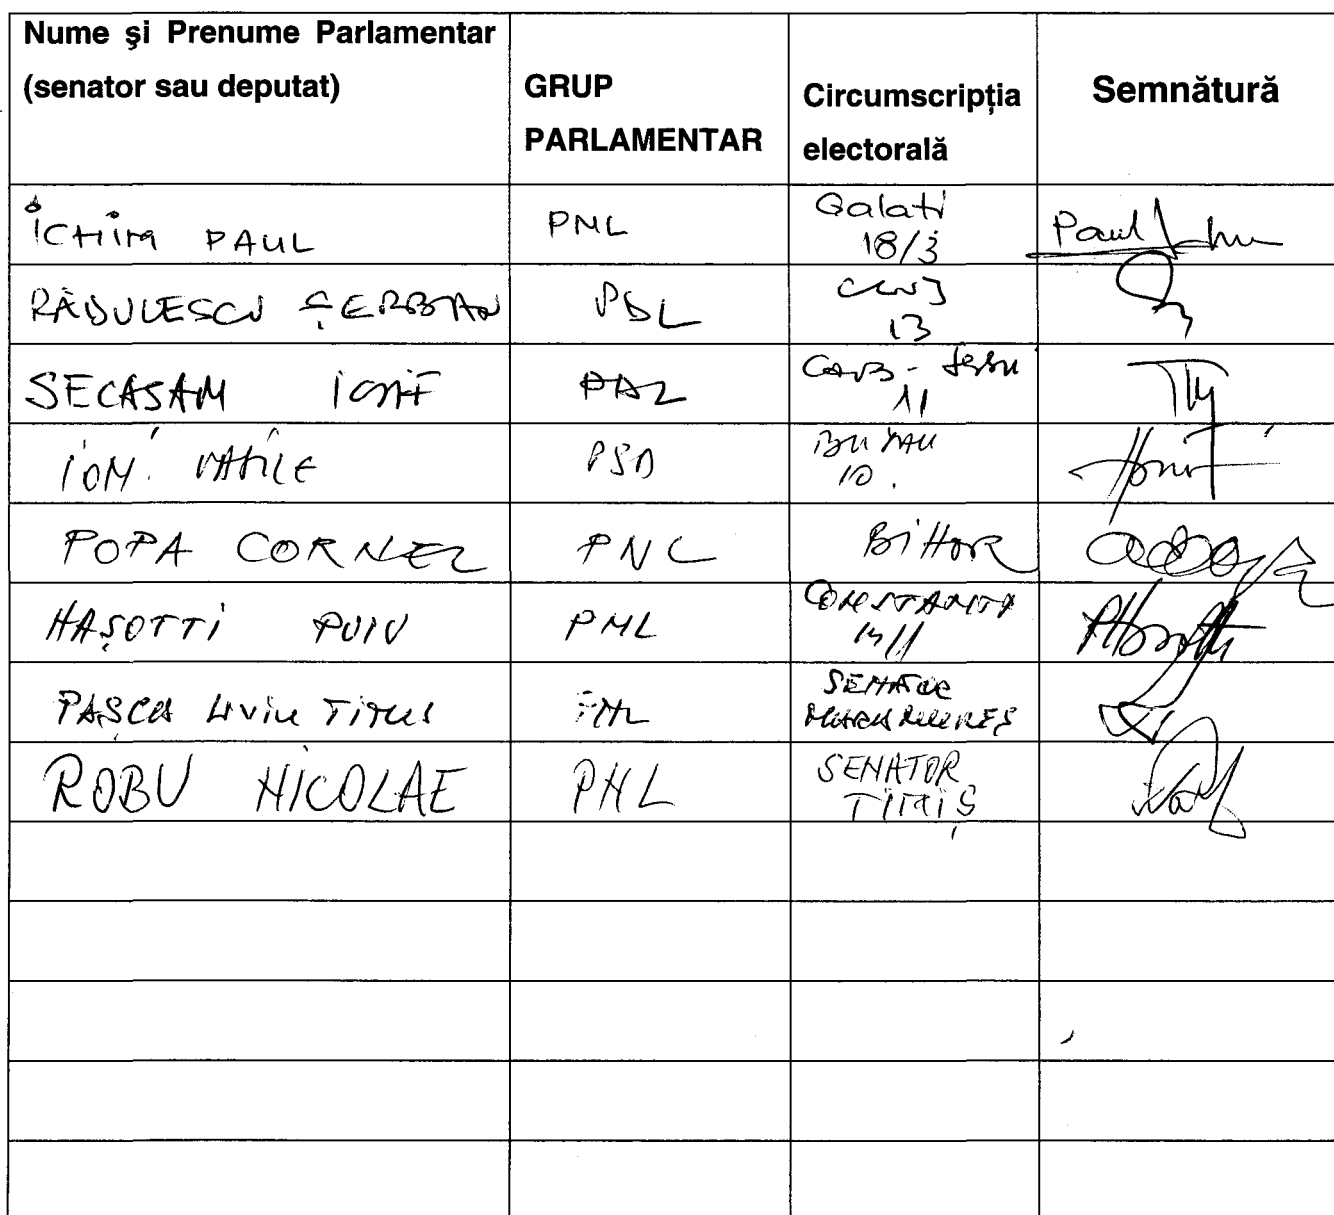 Nume și Prenume Parlamentar
(senator sau deputat)
GRUP
PARLAMENTAR
Circumscripția
electorală
Semnătură
PAUL PNL Galati
18/3
Paul
RĂDULESCU ȘERBAN PDL CLUJ
13
SECĂȘAN IOSIF PDL
11
ION VASILE PSD BUZĂU
10.
POPA CORNEL PNL BIHOR
HAȘOTTI PUIU PNL CONSTANTA
PAȘCA LIVIU TITUS PNL SENATOR
MARAMUREȘ
ROBU NICOLAE PNL SENATOR
TIMIȘ